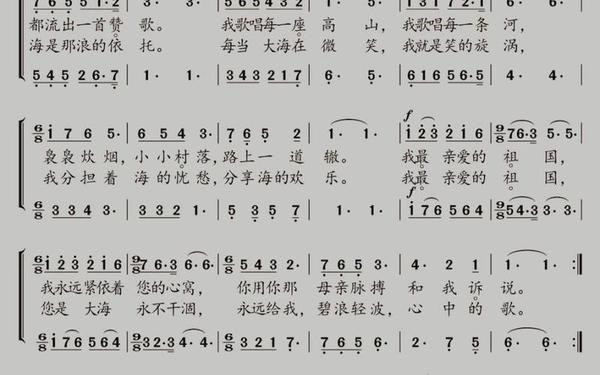 都流出一首赞 歌。 我歌唱每一座 高 山, 我歌唱每一条 河,
海是那浪的依 托。 每当 大海在 微 笑, 我就是笑的旋 涡,
5 4 5 2 2 6·7 1· 1· 3 4 3 2 1 7 6· 5· 6 1 6 5 6·5 4· 4·
6/8 i 7 6 5· 6 5 4 3· 7 6 5 2 1· 1· f i 2 3 2 i 6 9/8 7 6·3 5· 5·
袅袅炊烟, 小小村落, 路上一 道 辙。 我最 亲爱的 祖 国,
我分担着 海的忧愁, 分享海的欢 乐。 我最 亲爱的 祖 国,
6/8 3 3 4 3· 2 3 2 1· 5 3 5 7 1· 1· f i 7 6 5 6 4 9/8 5 4·3 3· 3·
6/8 i 2 3 2 i 6 9/8 7 6·3 6· 6· 6/8 5 4 3 2 7 6 5 3· 4· 2 1 6· 6· :||
我永远紧依着 您的心窝, 你用你那 母亲脉搏 和 我 诉 说。
您是 大海 永不干涸, 永远给我, 碧浪轻波, 心 中的 歌。
6/8 i 7 6 5 6 4 9/8 3 2·3 4· 4· 6/8 3 2 1 7 7 6 5 6· 2· 5 7 6· 6· :||